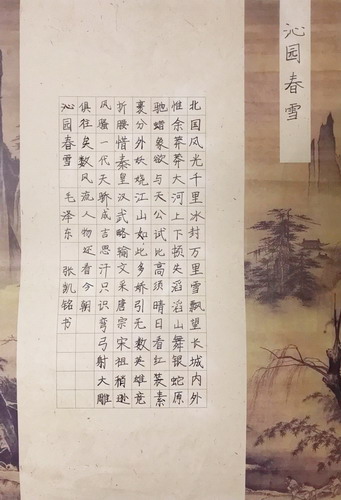 沁园春雪
北国风光千里冰封万里雪飘望长城内外
惟余莽莽大河上下顿失滔滔山舞银蛇原
驰蜡象欲与天公试比高须晴日看红装素
裹分外妖娆江山如此多娇引无数英雄竞
折腰惜秦皇汉武略输文采唐宗宋祖稍逊
风骚一代天骄成吉思汗只识弯弓射大雕
俱往矣数风流人物还看今朝
沁园春雪 毛泽东 张凯铭书